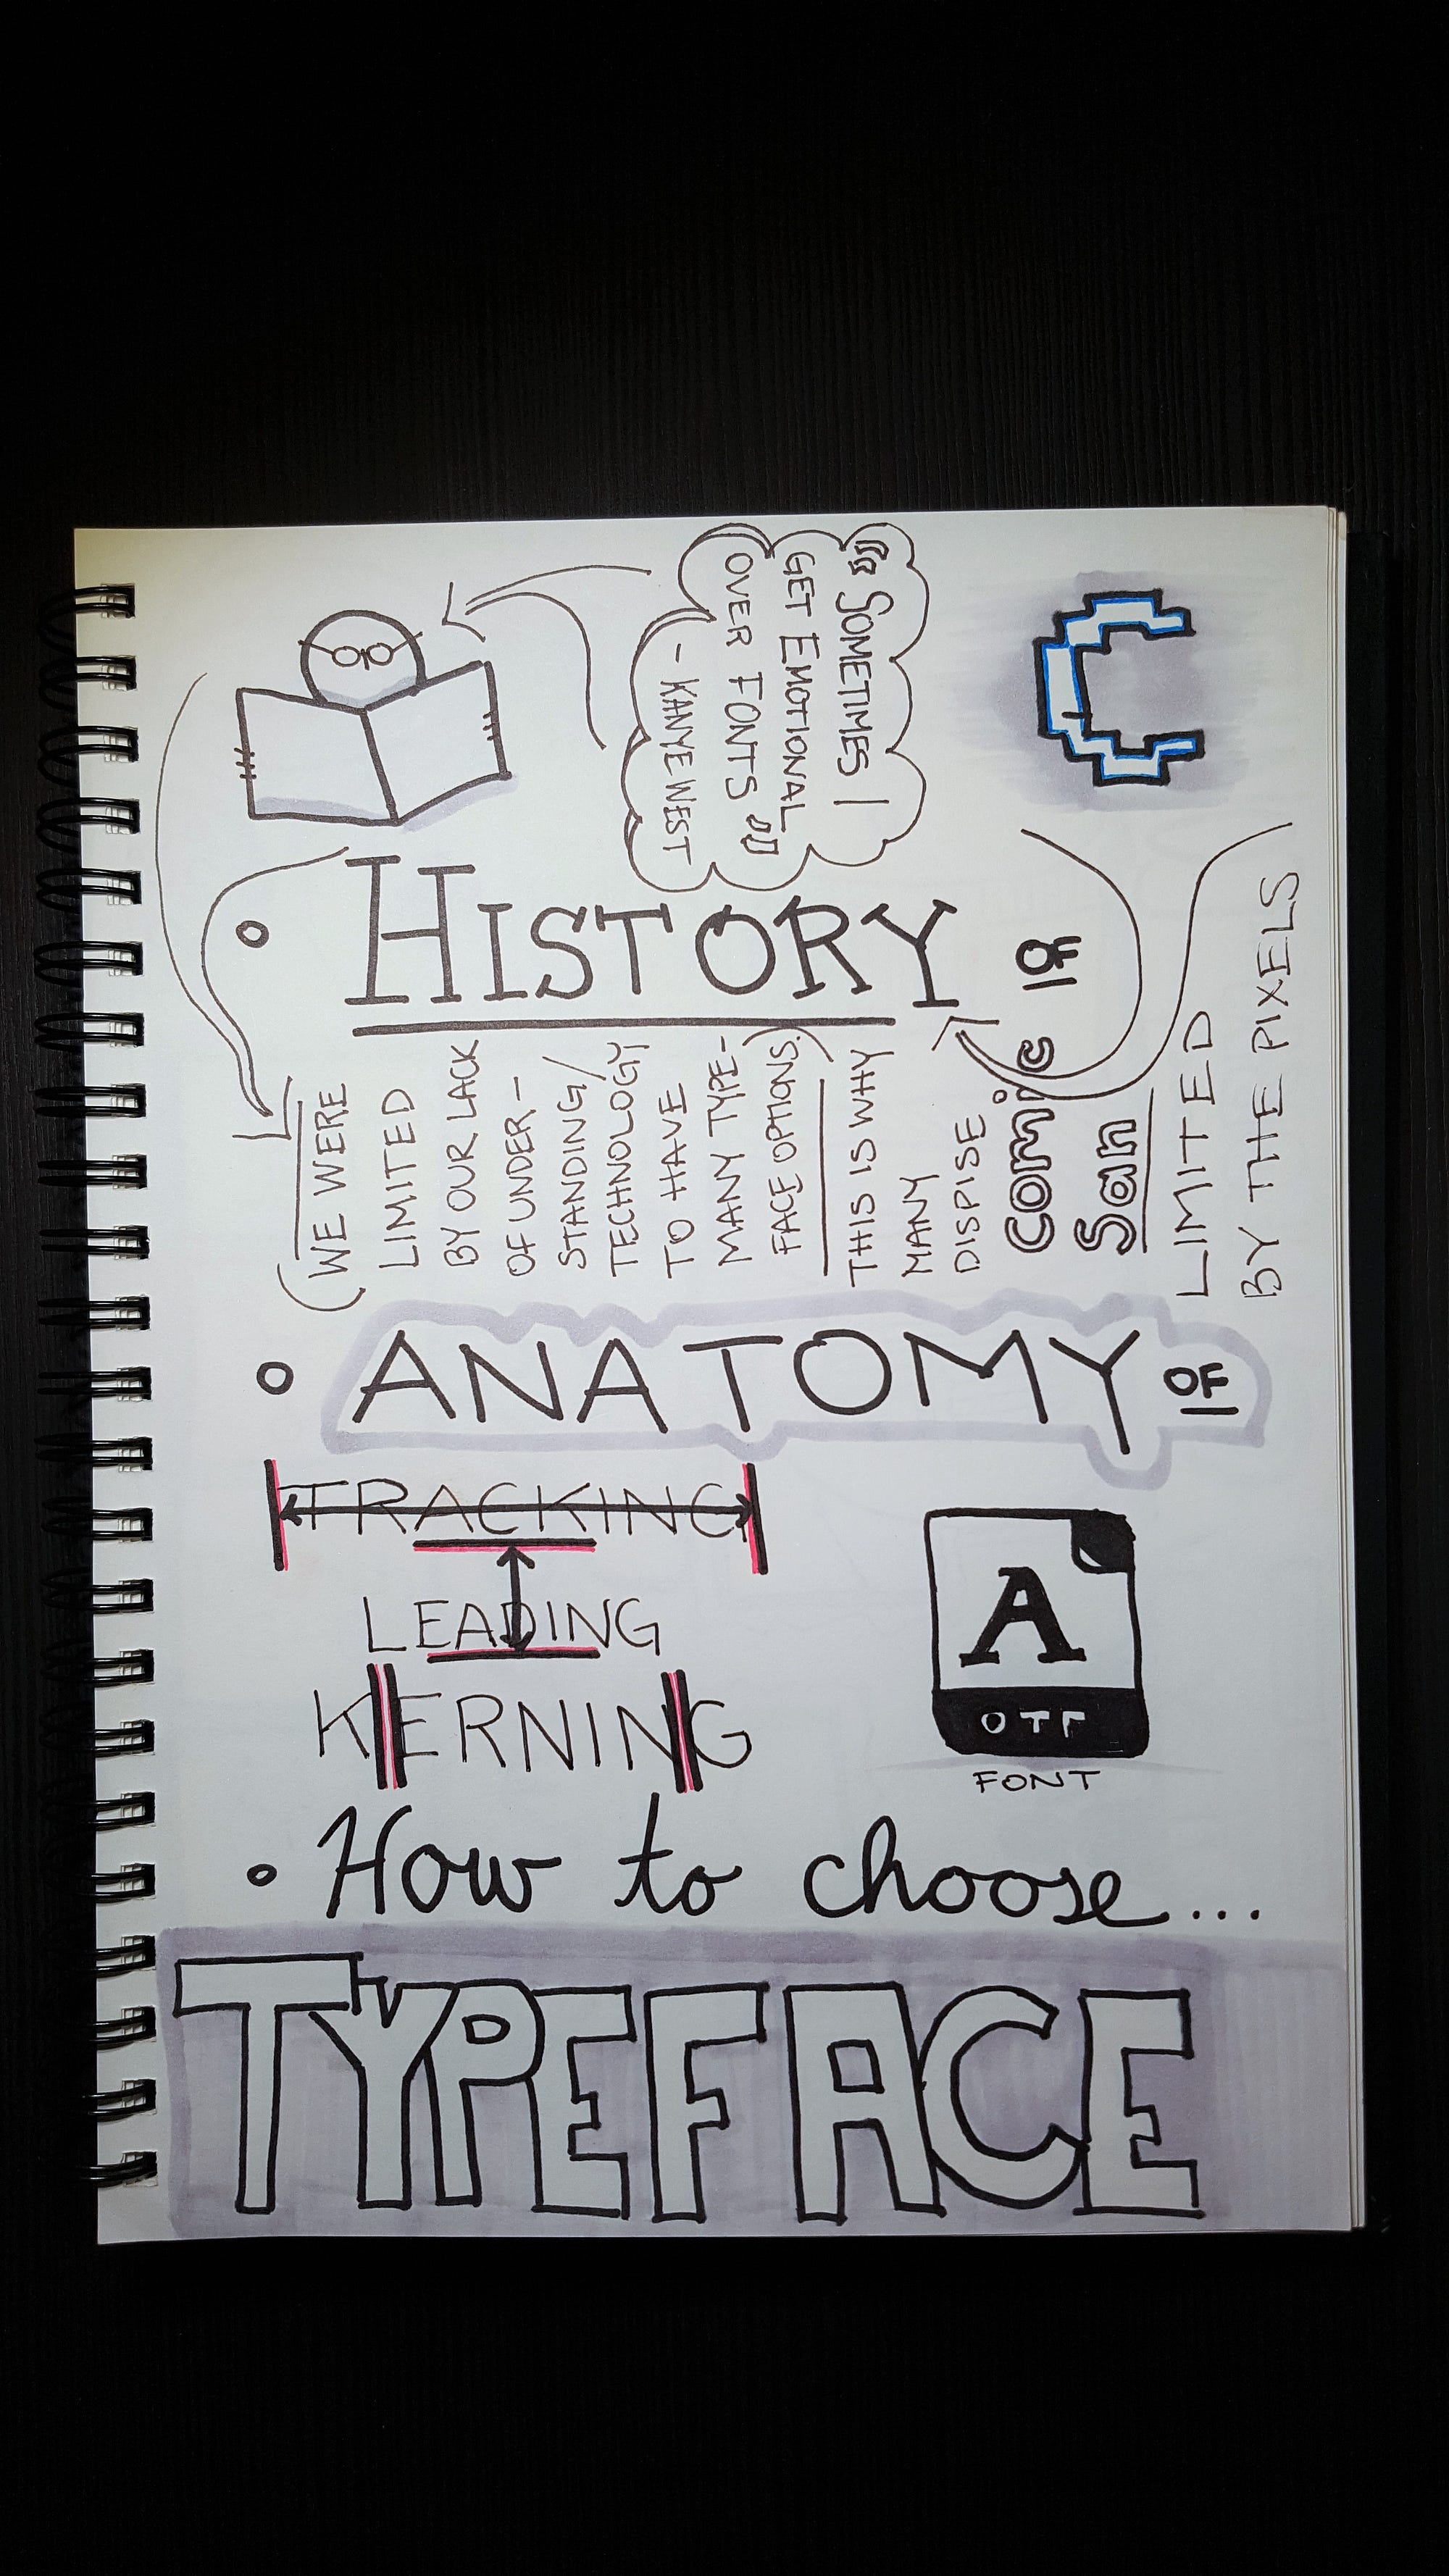 " SOMETIMES I
GET EMOTIONAL
OVER FONTS "
- KANYE WEST
HISTORY OF
(WE WERE
LIMITED
BY OUR LACK
OF UNDER-
STANDING/
TECHNOLOGY
TO HAVE
MANY TYPE-
FACE OPTIONS.)
THIS IS WHY
MANY
DISPISE
Comic
San
LIMITED
BY THE PIXELS
C
ANATOMY OF
TRACKING
LEADING
KERNING
A
OTF
FONT
How to choose...
TYPEFACE